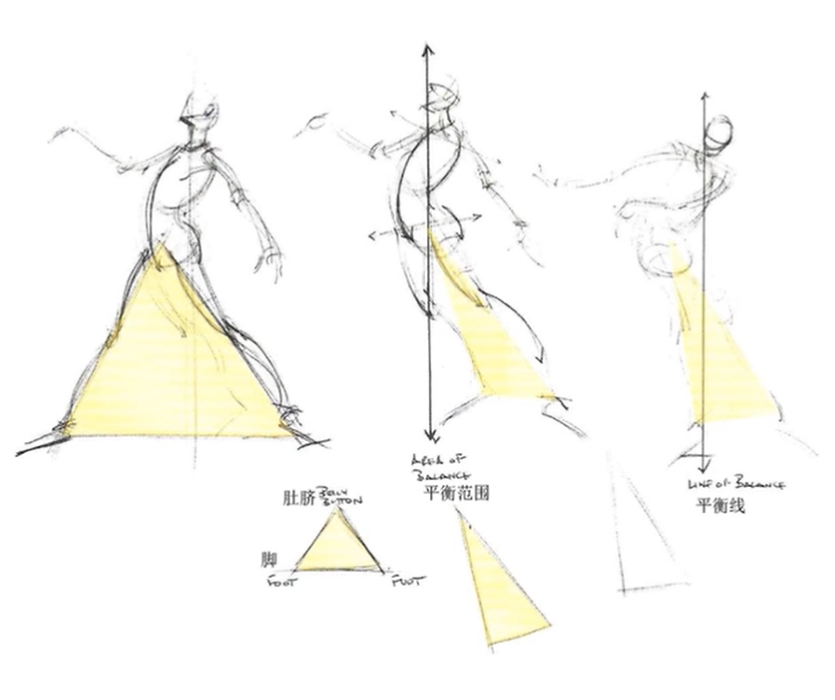 AREA OF
BALANCE
平衡范围
LINE OF BALANCE
平衡线
肚脐 BELLY
BUTTON
脚
FOOT FOOT